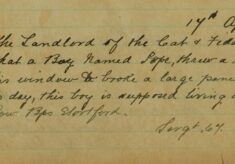 17th Ap
The Landlord of the Cat & Fidd
that a Boy Named Pope, threw a
his window & broke a large pane
is day, this boy is supposed living a
New Bps Stortford.
Sergt. 67.